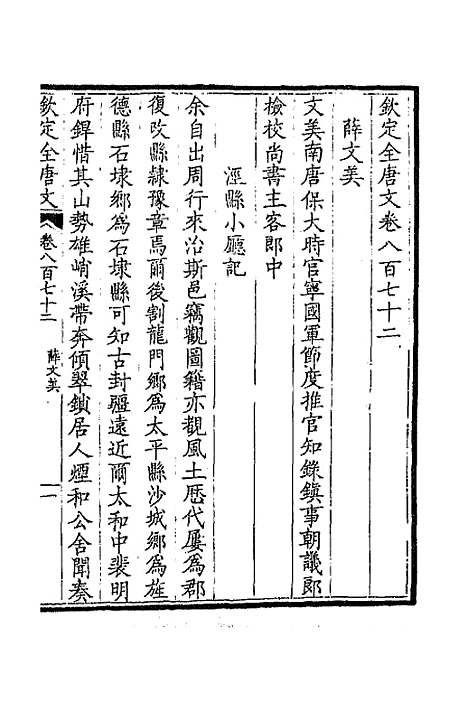 欽定全唐文卷八百七十二
薛文美
文美南唐保大時官寧國軍節度推官知錄鎮事朝議郎
檢校尚書主客郎中
涇縣小廳記
余自出周行來治斯邑竊觀圖籍亦覩風土歷代屢爲郡
復改縣隸豫章焉爾後割龍門鄉爲太平縣沙城鄉爲旌
德縣石埭鄉爲石埭縣可知古封疆遠近爾太和中裴明
府錍惜其山勢雄峭溪帶奔傾翠鎖居人煙和公舍聞奏
欽定全唐文
卷八百七十二
薛文美
一